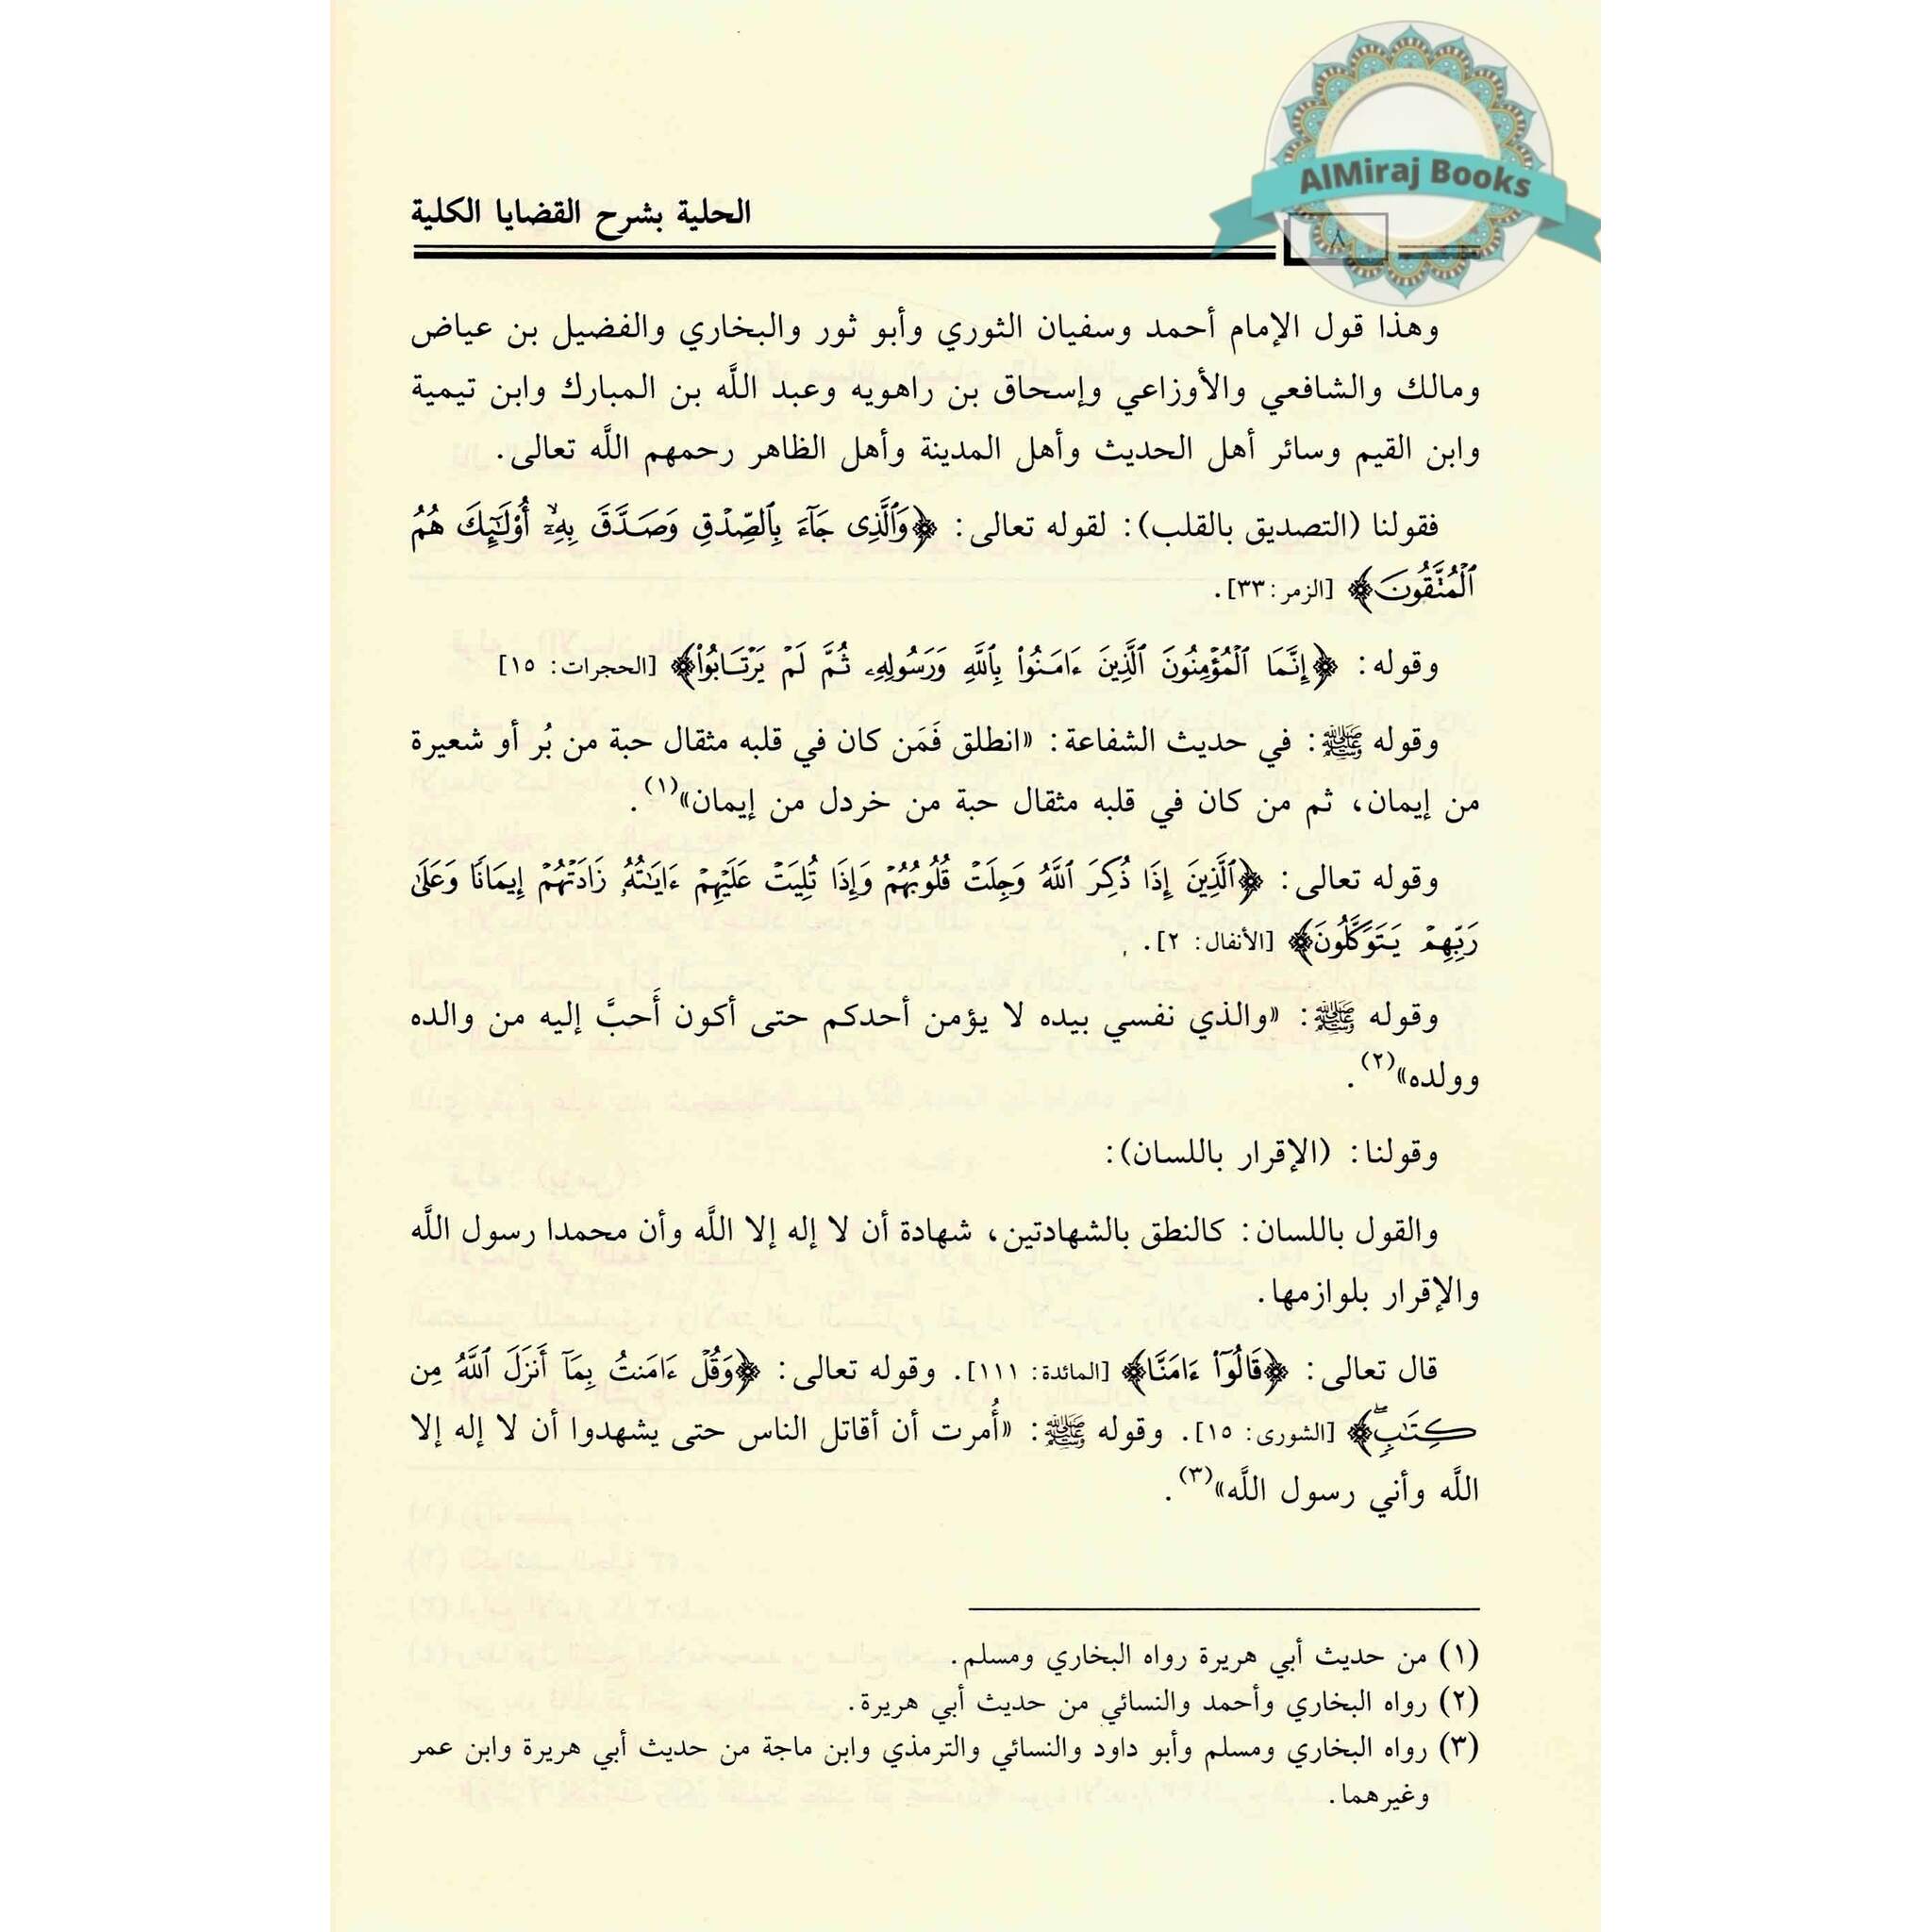 AlMiraj Books
الحلية بشرح القضايا الكلية
٨
وهذا قول الإمام أحمد وسفيان الثوري وأبو ثور والبخاري والفضيل بن عياض
ومالك والشافعي والأوزاعي وإسحاق بن راهويه وعبد اللَّه بن المبارك وابن تيمية
وابن القيم وسائر أهل الحديث وأهل المدينة وأهل الظاهر رحمهم اللَّه تعالى.
فقولنا (التصديق بالقلب): لقوله تعالى: ﴿وَٱلَّذِى جَآءَ بِٱلصِّدْقِ وَصَدَّقَ بِهِۦٓ ۙ أُوْلَٰٓئِكَ هُمُ
ٱلْمُتَّقُونَ﴾ [الزمر: ٣٣].
وقوله: ﴿إِنَّمَا ٱلْمُؤْمِنُونَ ٱلَّذِينَ ءَامَنُوا۟ بِٱللَّهِ وَرَسُولِهِۦ ثُمَّ لَمْ يَرْتَابُوا۟﴾ [الحجرات: ١٥]
وقوله ﷺ: في حديث الشفاعة: «انطلق فَمَن كان في قلبه مثقال حبة من بُر أو شعيرة
من إيمان، ثم من كان في قلبه مثقال حبة من خردل من إيمان»(١).
وقوله تعالى: ﴿ٱلَّذِينَ إِذَا ذُكِرَ ٱللَّهُ وَجِلَتْ قُلُوبُهُمْ وَإِذَا تُلِيَتْ عَلَيْهِمْ ءَايَٰتُهُۥ زَادَتْهُمْ إِيمَٰنًا وَعَلَىٰ
رَبِّهِمْ يَتَوَكَّلُونَ﴾ [الأنفال: ٢].
وقوله ﷺ: «والذي نفسي بيده لا يؤمن أحدكم حتى أكون أَحبَّ إليه من والده
وولده»(٢).
وقولنا: (الإقرار باللسان):
والقول باللسان: كالنطق بالشهادتين، شهادة أن لا إله إلا اللَّه وأن محمدا رسول اللَّه
والإقرار بلوازمها.
قال تعالى: ﴿قَالُوٓا۟ ءَامَنَّا﴾ [المائدة: ١١١]. وقوله تعالى: ﴿وَقُلْ ءَامَنتُ بِمَآ أَنزَلَ ٱللَّهُ مِن
كِتَٰبٍۖ﴾ [الشورى: ١٥]. وقوله ﷺ: «أُمرت أن أقاتل الناس حتى يشهدوا أن لا إله إلا
اللَّه وأني رسول اللَّه»(٣).
(١) من حديث أبي هريرة رواه البخاري ومسلم.
(٢) رواه البخاري وأحمد والنسائي من حديث أبي هريرة.
(٣) رواه البخاري ومسلم وأبو داود والنسائي والترمذي وابن ماجة من حديث أبي هريرة وابن عمر
وغيرهما.